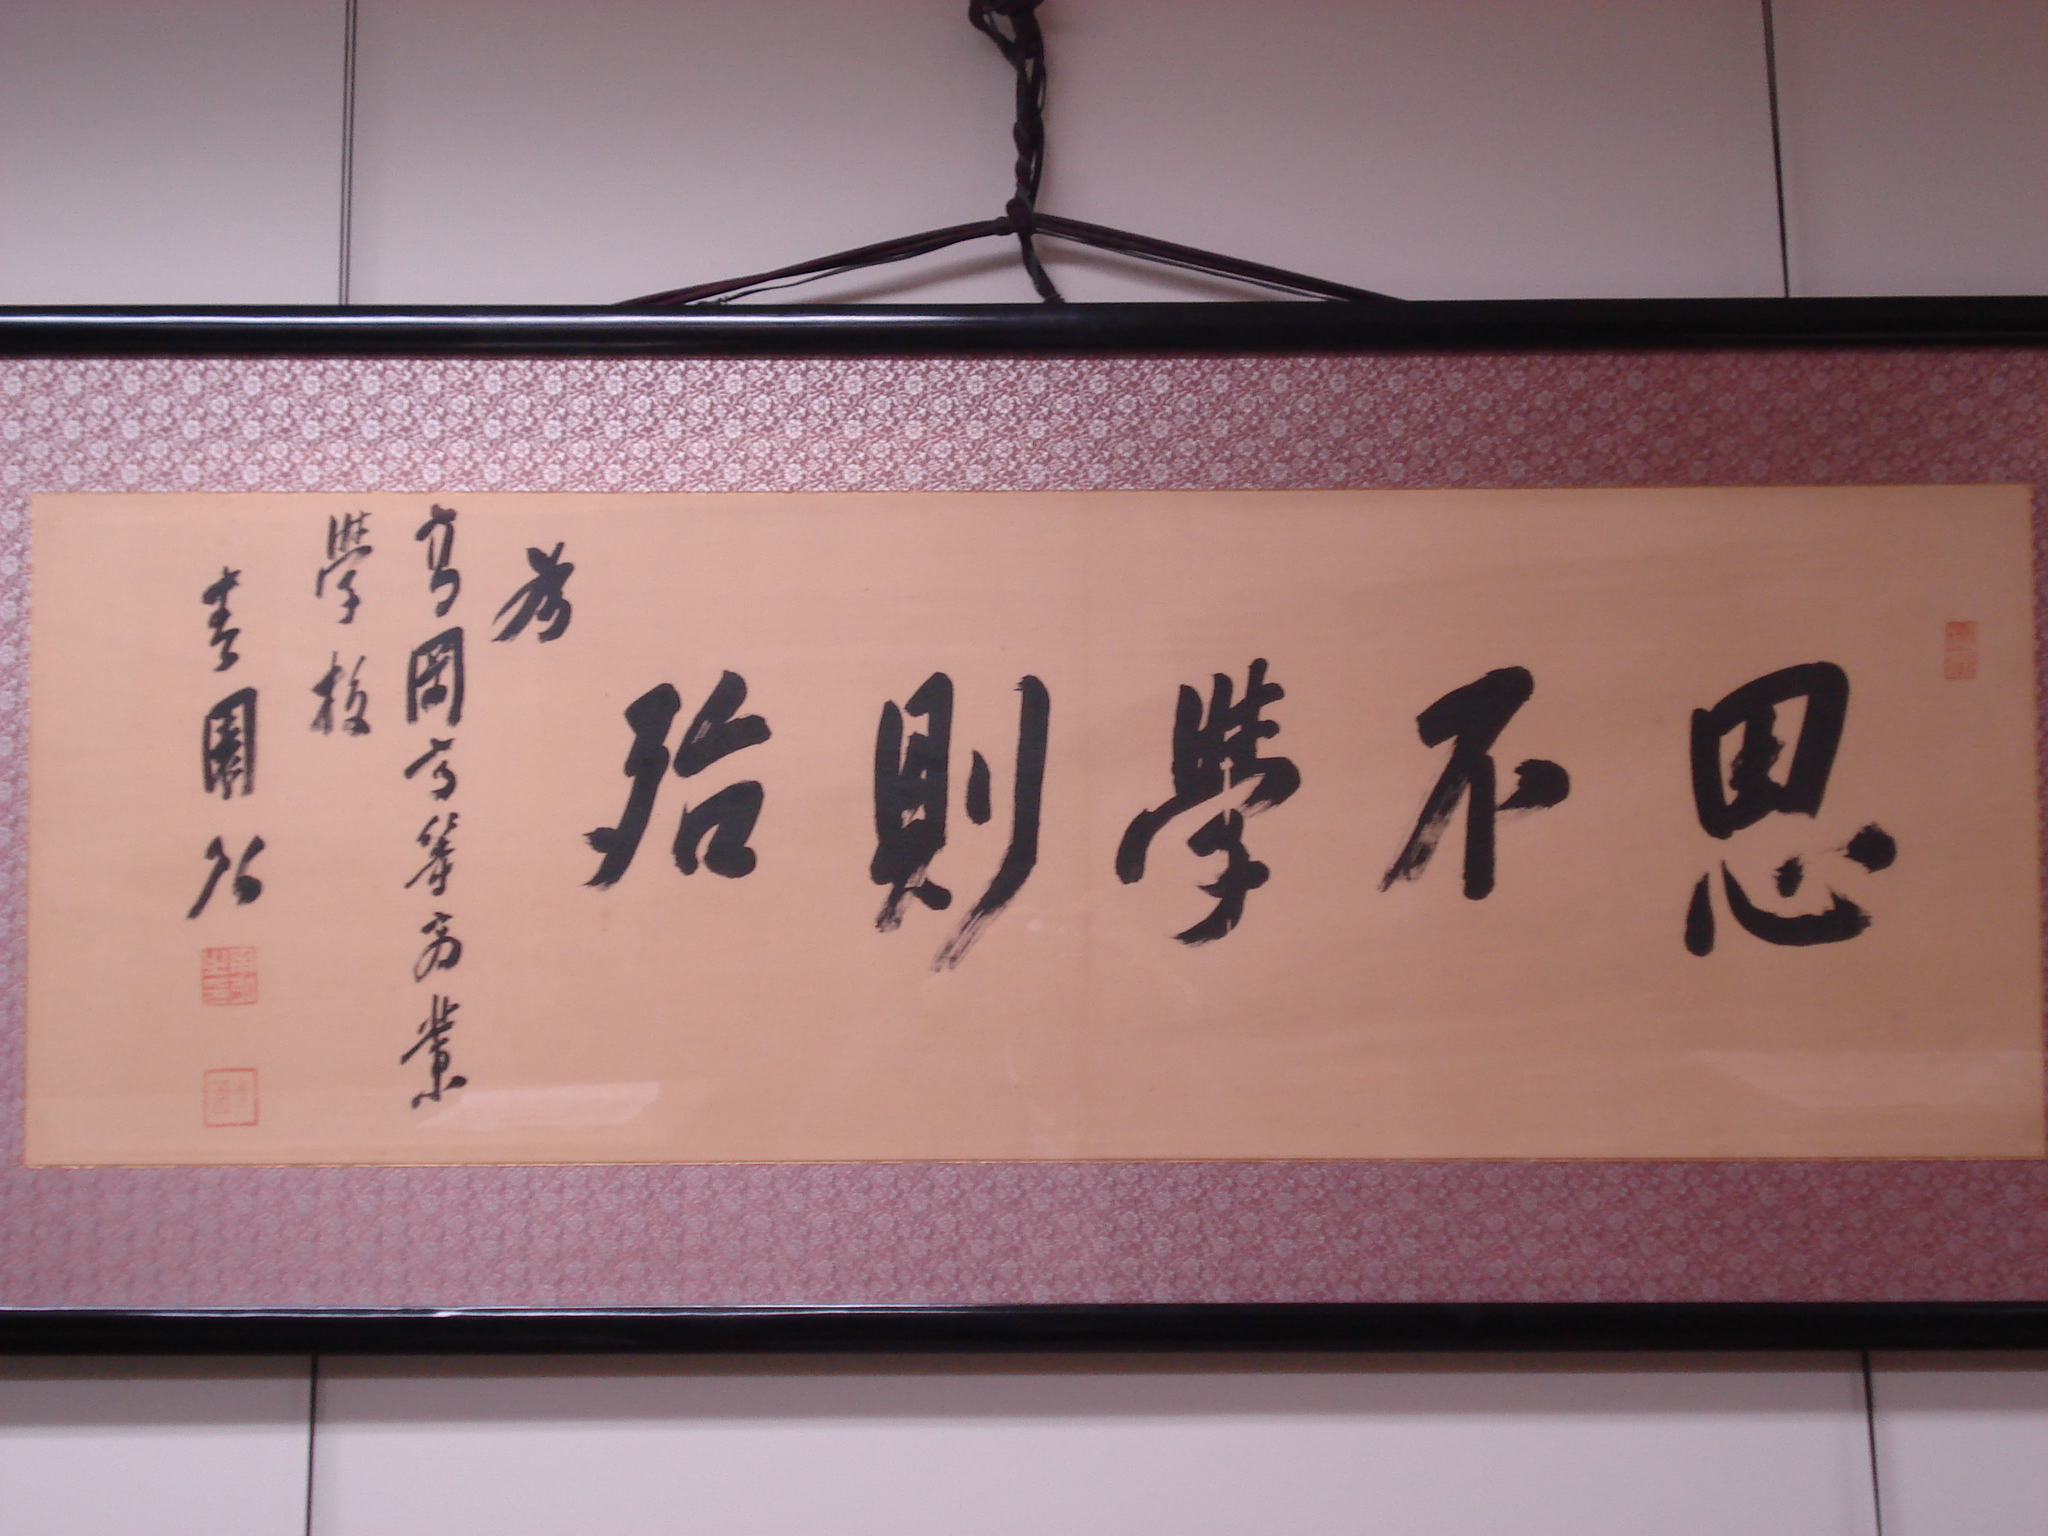 思不學則殆
為
高岡高等商業
學校
青園公